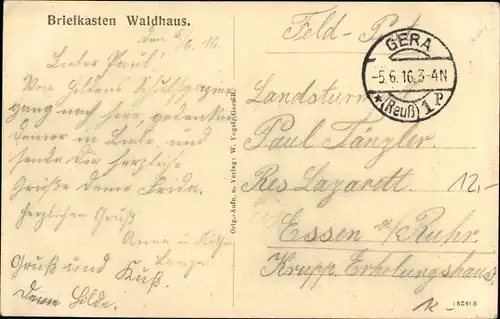 Briefkasten Waldhaus.
den 5/6. 16.
Lieber Paul!
Von Hildens Schulspazier
gang nach hier, gedenken
Deiner in Liebe und
sende Dir herzliche
Grüße Deine Frida.
Herzlichen Gruß
Anna u.
Lange
Gruß und Kuß.
Deine Hilde.
Orig.-Aufn. u. Verlag: W. Vogel, Gera-R.
Feld-Post
GERA
-5.6.16.3-4N
* (Reuß) 1P
Landsturm
Paul Tänzler.
Res Lazarett.
12-
Essen a/Ruhr.
Krupp Erholungshaus